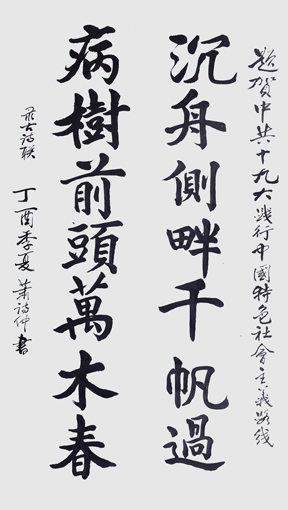 题贺中共十九大践行中國特色社會主義路线
沉舟側畔千帆過
病樹前頭萬木春
录古詩联
丁酉季夏 萧詩仲書